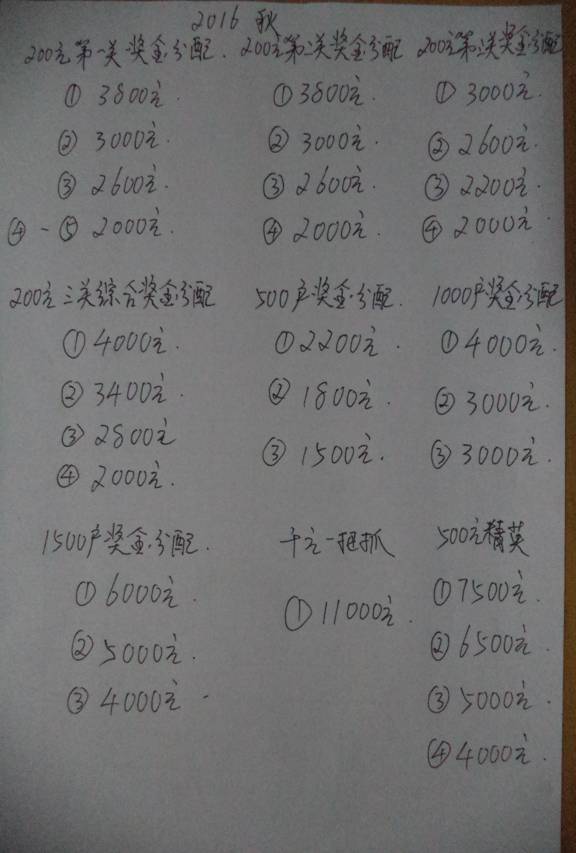 2016 秋
200元第一关奖金分配.
① 3800元.
② 3000元.
③ 2600元.
④-⑤ 2000元.
200元第二关奖金分配
① 3800元.
② 3000元.
③ 2600元.
④ 2000元.
200元第三关奖金分配
① 3000元.
② 2600元.
③ 2200元.
④ 2000元.
200元三关综合奖金分配
① 4000元.
② 3400元.
③ 2800元
④ 2000元.
500户奖金分配.
① 2200元.
② 1800元.
③ 1500元.
1000户奖金分配
① 4000元.
② 3000元.
③ 3000元.
1500户奖金分配.
① 6000元.
② 5000元.
③ 4000元.
千元一把抓
① 11000元.
500元精英
① 7500元.
② 6500元.
③ 5000元.
④ 4000元.